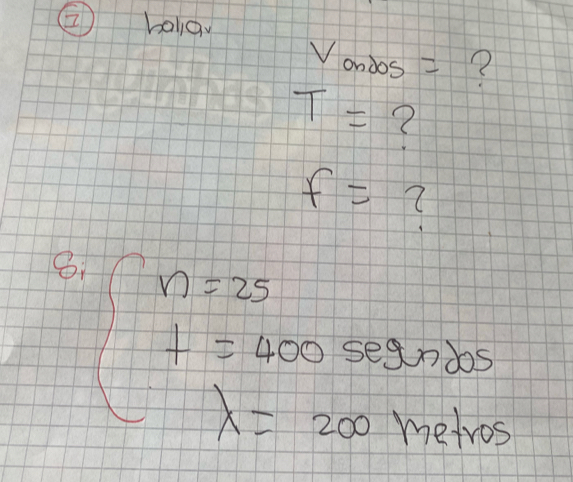 ① hallar
V ondas = ?
T = ?
f = ?
Si
n = 25
t = 400 segundos
λ = 200 metros